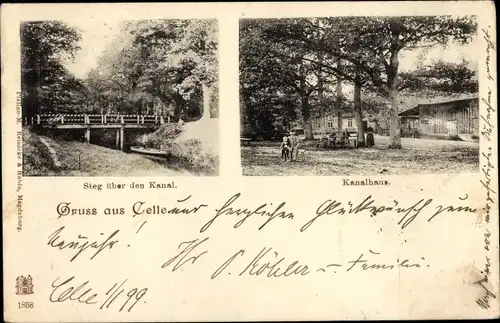 Steg über den Kanal.
Kanalhaus.
Gruss aus Celle und herzlichen Glückwunsch zum
Neujahr!
Ihr P. Köhler u. Familie.
Celle 1/1 99
Philipp M. Reinicke & Rubin, Magdeburg.
1858